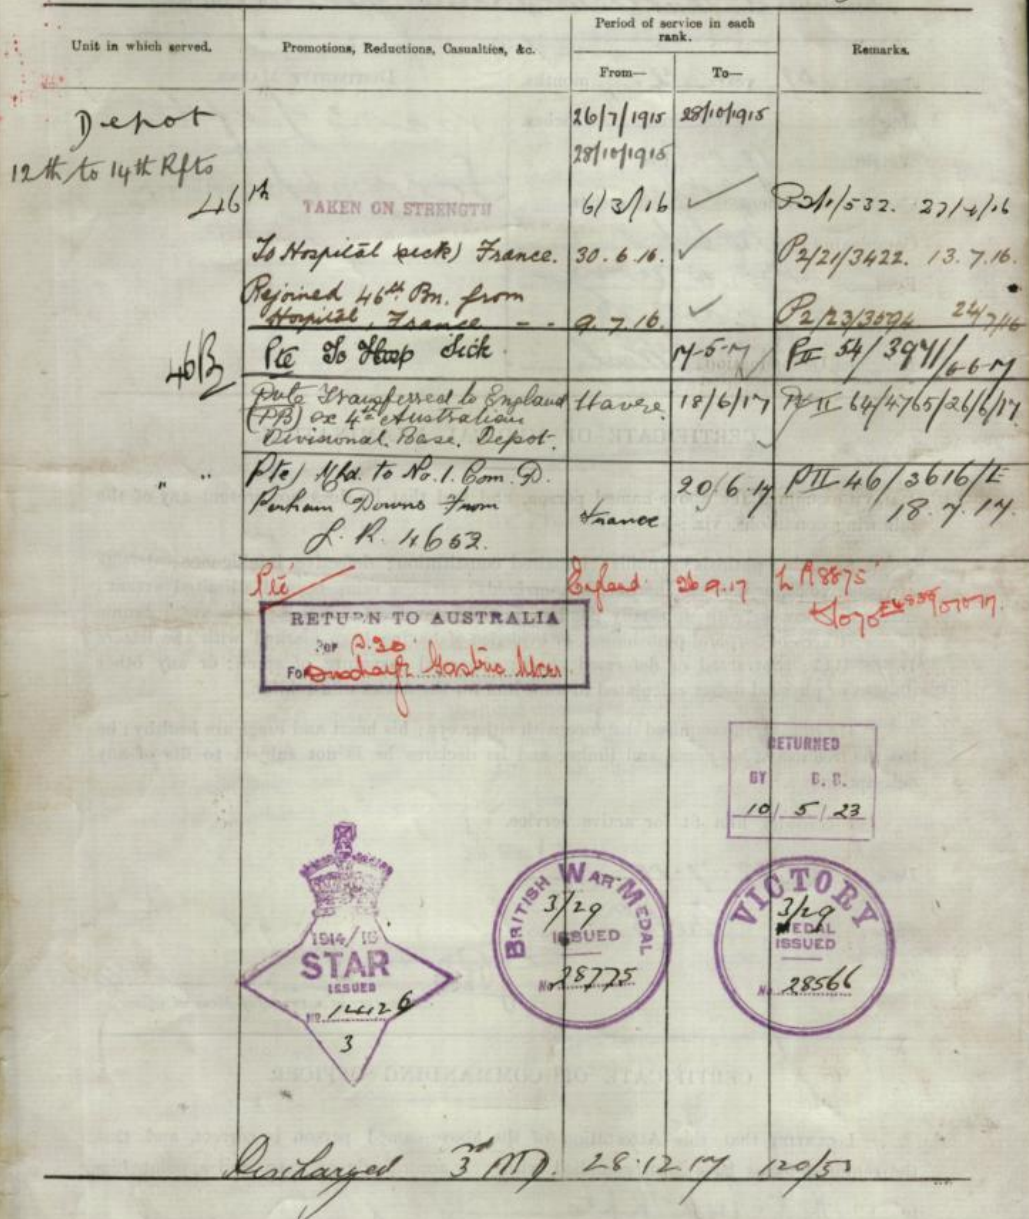 Unit in which served.
Promotions, Reductions, Casualties, &c.
Period of service in each
rank.
From—
To—
Remarks.
Depot
26/7/1915 28/10/1915
12th to 14th Rfts
28/10/1915
46th
TAKEN ON STRENGTH
6/3/16
532. 27/4/16
To Hospital (sick) France. 30.6.16. P2/21/3422. 13.7.16.
Rejoined 46th Bn. from
Hospital, France - - 9.7.16. P2/23/3594 24/7/16
46B
Pte To Hosp Sick 17-5-17 PII 54/3971/6-6-17
Pvte Transferred to England Havre 18/6/17 PII 64/4765/26/6/17
(PB) ex 4th Australian
Divisional. Base. Depot.
" "
Pte) Mfd. to No. 1. Com. D. 20/6.17 PII 46/3616/E
Perham Downs From France 18.7.17.
L.R. 4662.
Pte England 26.9.17 8875
RETURN TO AUSTRALIA
Per A.30
For Discharge Gastric Ulcer
RETURNED
BY B.R.
10/5/23
1914/15
STAR
ISSUED
NO. 14426
3
BRITISH WAR MEDAL
3/29
ISSUED
No 28775
VICTORY
3/29
MEDAL
ISSUED
No. 28566
Discharged 3rd MD. 28.12.17 120/53
CERTIFICATE OF COMMANDING OFFICER